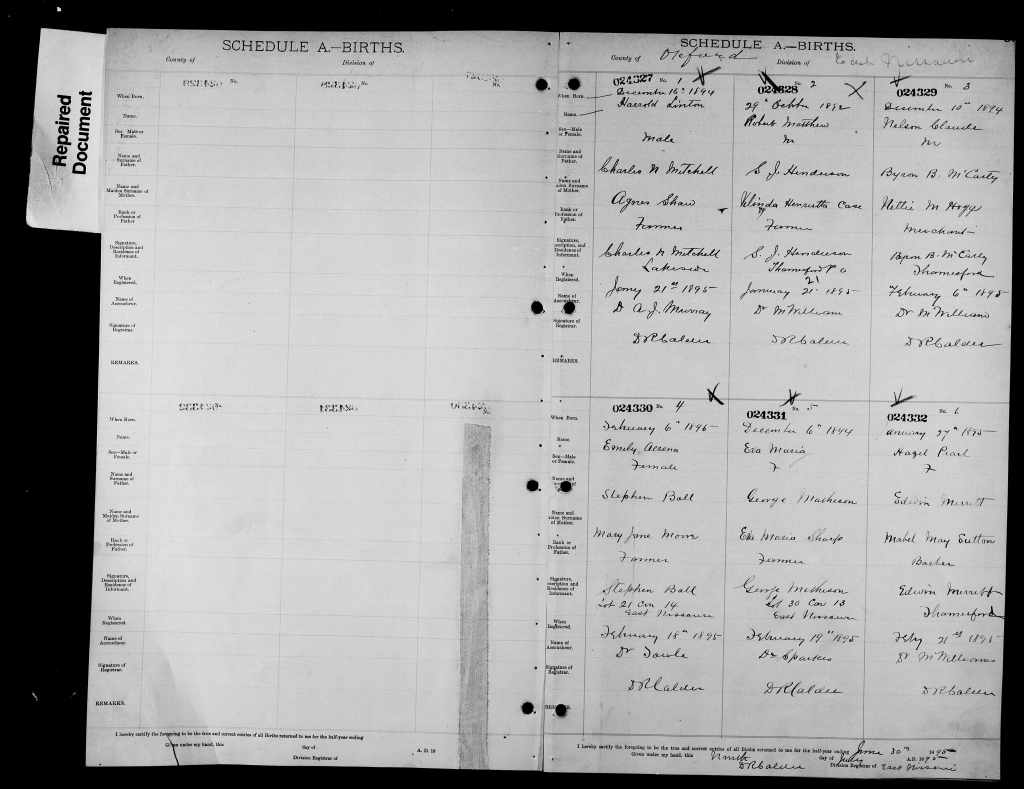 Repaired
Document
SCHEDULE A.—BIRTHS.
County of
Division of
No.
No.
No.
When Born.
Name.
Sex—Male or
Female.
Name and
Surname of
Father.
Name and
Maiden Surname
of Mother.
Rank or
Profession of
Father.
Signature,
Description and
Residence of
Informant.
When
Registered.
Name of
Accoucheur.
Signature of
Registrar.
REMARKS.
When Born.
Name.
Sex—Male or
Female.
Name and
Surname of
Father.
Name and
Maiden Surname
of Mother.
Rank or
Profession of
Father.
Signature,
Description and
Residence of
Informant.
When
Registered.
Name of
Accoucheur.
Signature of
Registrar.
REMARKS.
I hereby certify the foregoing to be the true and correct entries of all Births returned to me for the half-year ending
Given under my hand, this day of A. D. 18
Division Registrar of
SCHEDULE A.—BIRTHS.
County of Oxford Division of East Nissouri
024327 No. 1 024328 No. 2 024329 No. 3
When Born. December 16th 1894 29th October 1892 December 10th 1894
Name. Harrold Linton Robert Matthew Nelson Claude
Sex—Male
or Female. Male M M
Name and
Surname of
Father. Charles N Mitchell S. J. Henderson Byron B. McCarty
Name and
Maiden Surname
of Mother. Agnes Shaw Henrietta Case Nettie M Hogg
Rank or
Profession of
Father. Farmer Farmer Merchant
Signature,
Description, and
Residence of
Informant. Charles N Mitchell S. J. Henderson Byron B. McCarty
Lakeside Thamesford P O Thamesford
When
Registered. Jany 21st 1895 January 21st 1895 February 6th 1895
21
Name of
Accoucheur. Dr A. J. Murray Dr McWilliam Dr McWilliams
Signature of
Registrar. D R Calder D R Calder D R Calder
REMARKS.
024330 No. 4 024331 No. 5 024332 No. 6
When Born. February 6th 1895 December 6th 1894 January 27th 1895
Name Emily Eva Maria Hazel Pearl
Sex—Male
or Female. Female F F
Name and
Surname of
Father. Stephen Ball George Matheson Edwin Merritt
Name and
Maiden Surname
of Mother. Mary Jane Moore Eva Maria Sharp Mabel May Sutton
Rank or
Profession of
Father. Farmer Farmer Barber
Signature,
Description and
Residence of
Informant. Stephen Ball George Matheson Edwin Merritt
Lot 21 Con 14 Lot 30 Con 13 Thamesford
East Nissouri East Nissouri
When
Registered. February 18th 1895 February 19th 1895 Feby 21st 1895
Name of
Accoucheur. Dr Towle Dr Sparks Dr McWilliams
Signature of
Registrar. D R Calder D R Calder D R Calder
REMARKS.
I hereby certify the foregoing to be the true and correct entries of all Births returned to me for the half-year ending June 30th 1895
Given under my hand, this Ninth day of July A.D. 1895
D R Calder Division Registrar of East Nissouri